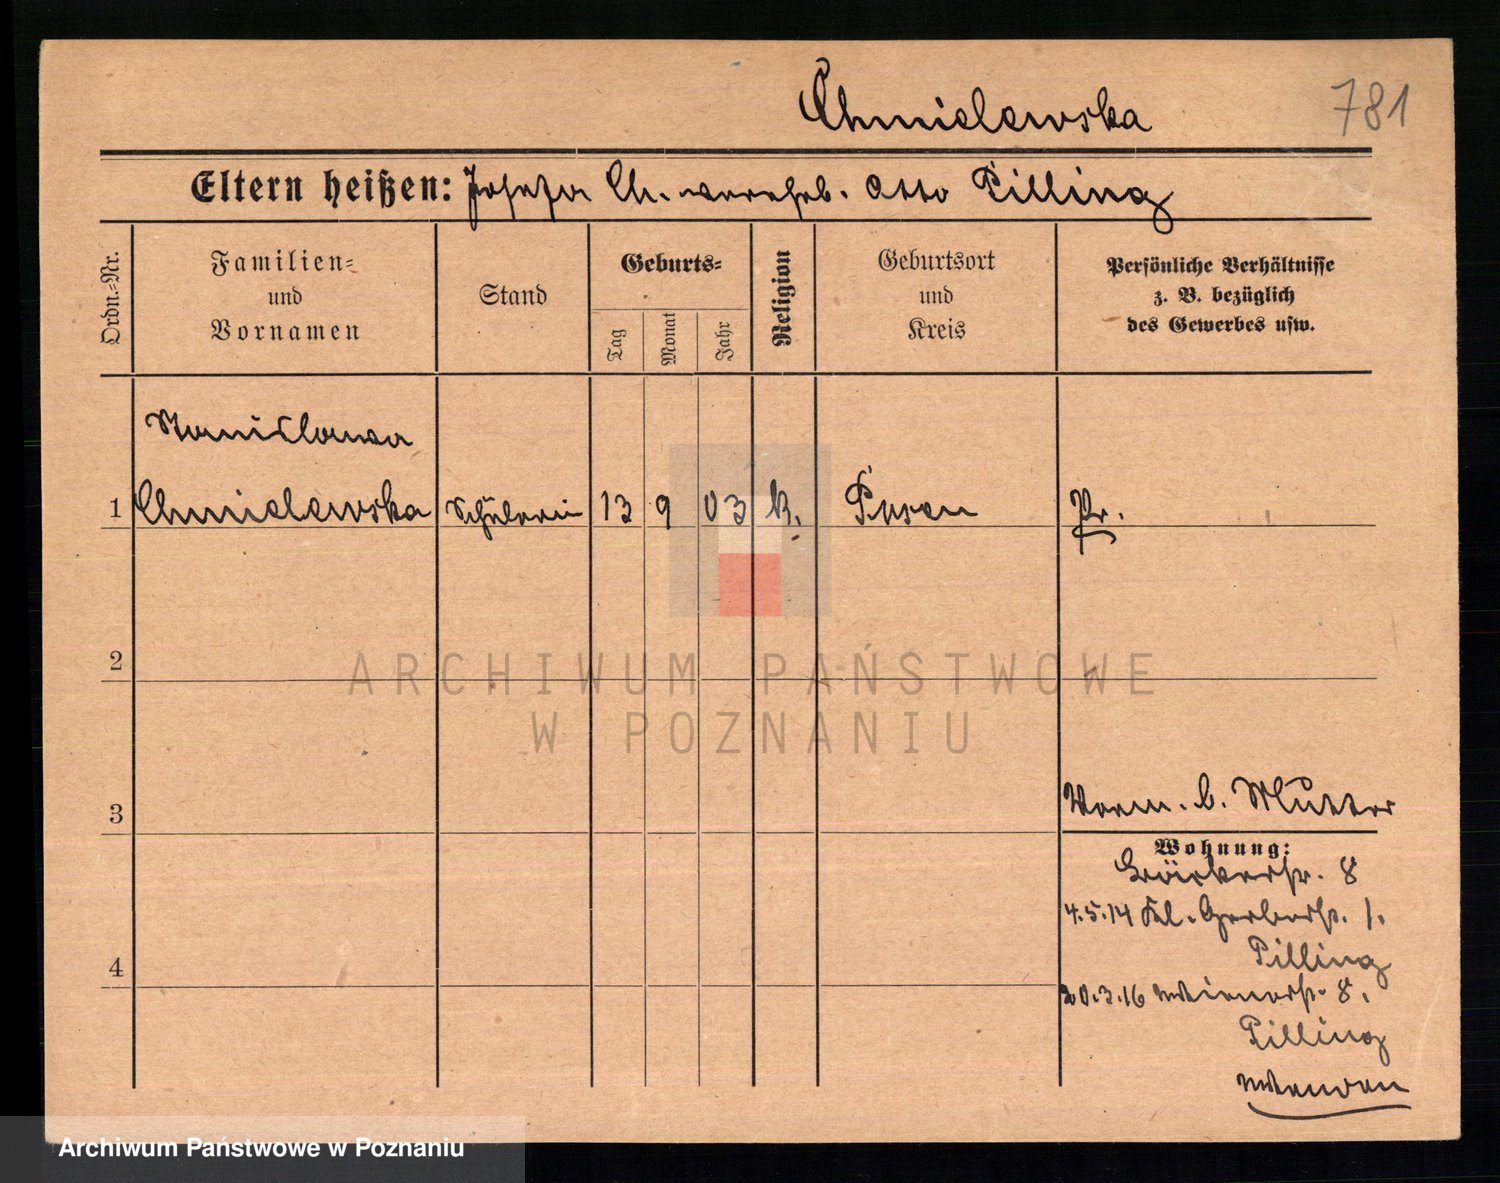 Chmielewska
781
Eltern heißen: Josefa Ch. verehel. Otto Pilling
Ordn.-Nr.
Familien-
und
Vornamen
Stand
Geburts-
Tag
Monat
Jahr
Religion
Geburtsort
und
Kreis
Persönliche Verhältnisse
z. B. bezüglich
des Gewerbes usw.
Stanislawa
1 Chmielewska Schülerin 13 9 03 k. Posen Pr.
2
3
Vorm. b. Mutter
Wohnung:
8
4.5.14 Kl. Gerberstr. 1.
Pilling
4
20.3.16 Wienerstr. 8.
Pilling
Wenden
ARCHIWUM PAŃSTWOWE
W POZNANIU
Archiwum Państwowe w Poznaniu